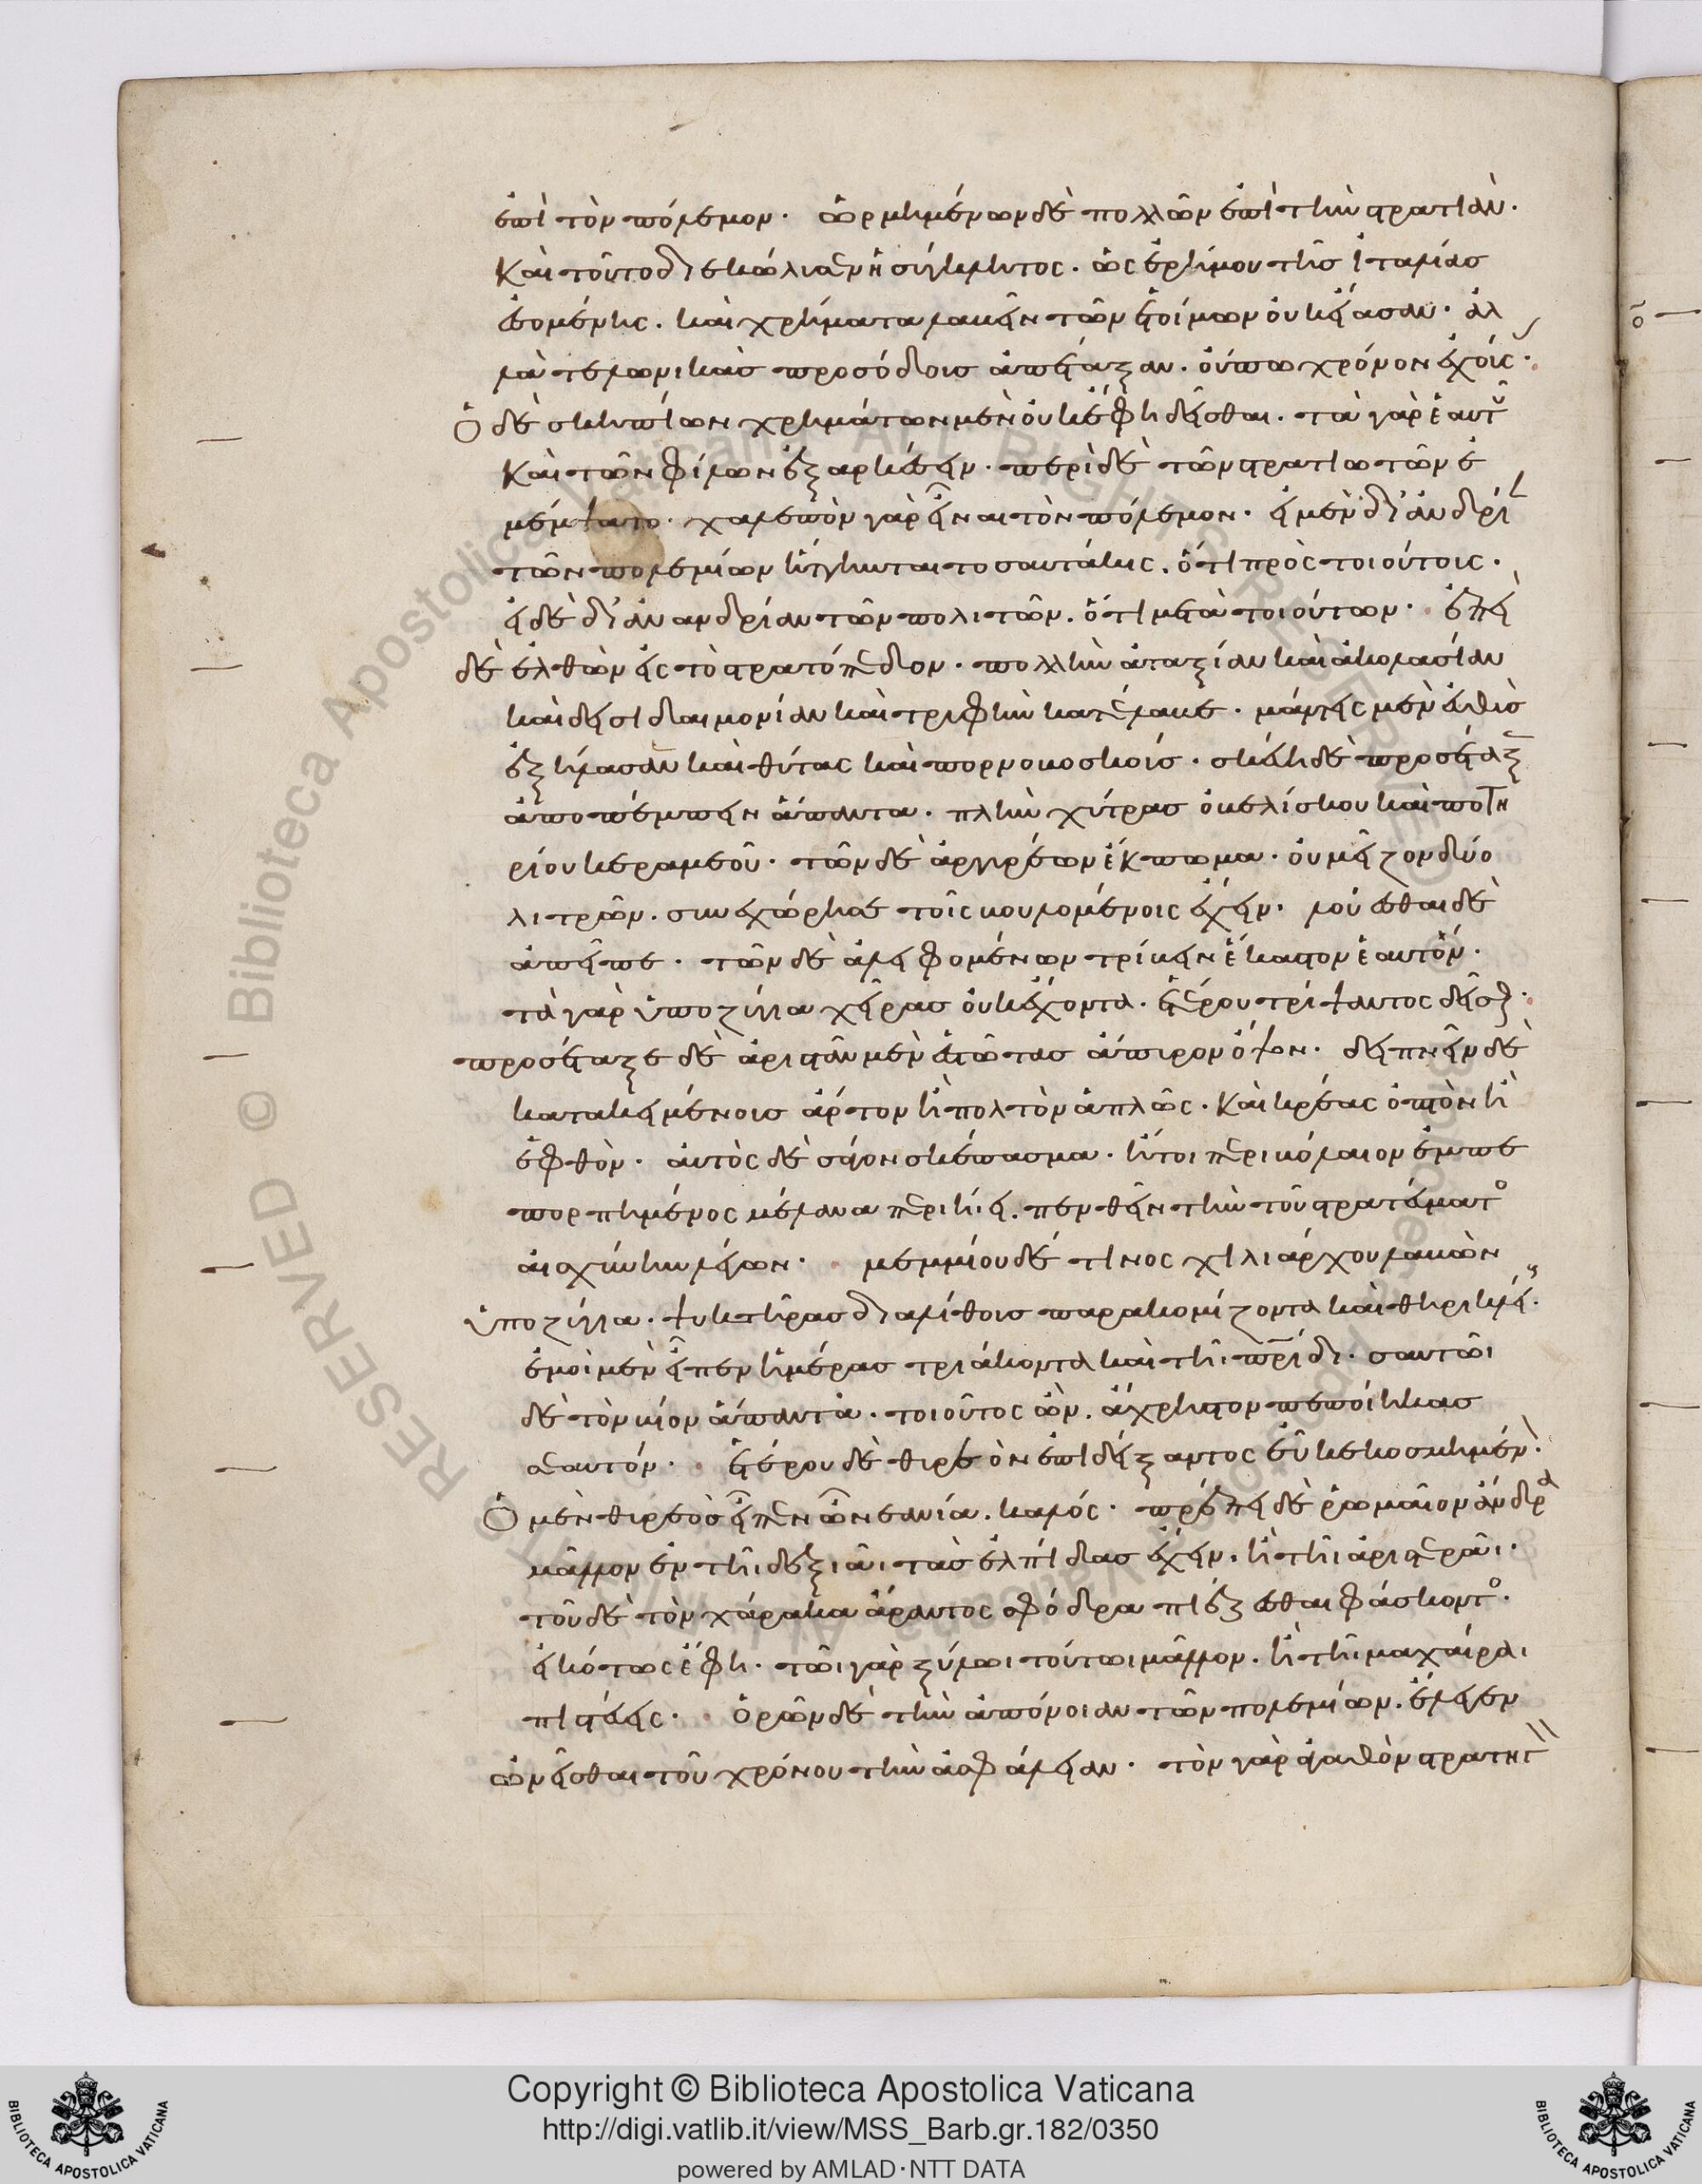 ἐπὶ τὸν πόλεμον· ὡρμημένων δὲ πολλῶν ἐπὶ τὴν στρατιὰν·
Καὶ τοῦτο διεκώλυσεν ἡ σύγκλητος· ὡς ἐρήμου τῆς ἰταλίας
ἐσομένης. καὶ χρήματα λαβεῖν τῶν ἑτοίμων οὐκ εἴασαν· ἀλ
λὰ τελωνικὰς προσόδους ἀπέταξαν. οὔπω χρόνον ἐχούσ·
Ὁ δὲ σκηπίων χρημάτων μὲν οὐκ ἔφη δεῖσθαι. τὰ γὰρ ἑαυτοῦ
Καὶ τῶν φίλων ἐξαρκέσειν. περὶ δὲ τῶν στρατιωτῶν ἐ
μέμψατο· χαλεπὸν γὰρ εἶναι τὸν πόλεμον· εἰ μὲν δι' ἀνδρεί
τῶν πολεμίων ἥττηνται τοσαυτάκις. ὅτι πρὸς τοιούτους·
εἰ δὲ δι' ἀνανδρίαν τῶν πολιτῶν. ὅτι μετὰ τοιούτων· ἐπεὶ
δὲ ἐλθὼν εἰς τὸ στρατόπεδον· πολλὴν ἀταξίαν καὶ ἀκολασίαν
καὶ δεισιδαιμονίαν καὶ τρυφὴν κατέλαβε· μάντεις μὲν εὐθὺς
ἐξήλασεν καὶ θύτας καὶ πορνοβοσκούς· σκεύη δὲ προσέταξ
ἀποπέμπειν ἅπαντα· πλὴν χύτρας ὀβελίσκου καὶ ποτη
ρίου κεραμεοῦ· τῶν δὲ ἀργυρέων ἔκπωμα· οὐ μεῖζον δύο
λιτρῶν. συνεχώρησε τοῖς βουλομένοις ἔχειν· λούεσθαι δὲ
ἀπεῖπε· τῶν δὲ ἀλειφομένων τρίβειν ἕκαστον ἑαυτόν·
τὰ γὰρ ὑποζύγια χεῖρας οὐκ ἔχοντα. ἑτέρου τρίψαντος δεῖσθ·
προσέταξε δὲ ἀριστᾶν μὲν ἑστῶτας ἄπυρον ὄψον· δειπνεῖν δὲ
κατακειμένους ἄρτον ἢ πολτὸν ἁπλῶς· Καὶ κρέας ὀπτὸν ἢ
ἑφθὸν· αὐτὸς δὲ σάγον σκέπασμα· ἤτοι περιβόλαιον ἐμπε
πορπημένος μέλανα περιῄει. πενθεῖν τὴν τοῦ στρατεύματο
αἰσχύνην λέγων· μεμμίου δέ τινος χιλιάρχου λαβὼν
ὑποζύγια· ψυκτῆρας διαλίθους παρακομίζοντα καὶ θηρικλεί·
ἐμοὶ μὲν εἶπεν ἡμέρας τριάκοντα καὶ τῆι πρίδι· σαυτῶι
δὲ τὸν βίον ἅπαντα. τοιοῦτος ὢν. ἄχρηστον πεποίηκας
σεαυτόν· ἑτέρου δὲ θυρεὸν ἐπιδείξαντος εὖ κεκοσμημέν·
Ὁ μὲν θυρεὸς εἶπεν ὦ νεανία. καλός· πρέπει δὲ ῥωμαῖον ἄνδρα
μᾶλλον ἐν τῆι δεξιᾶι τὰς ἐλπίδας ἔχειν. ἢ τῆι ἀριστερᾶι·
τοῦ δὲ τὸν χάρακα ἄραντος σφόδρα πιέζεσθαι φάσκοντο·
εἰκότως ἔφη· τῶι γὰρ ξύλωι τούτωι μᾶλλον. ἢ τῆι μαχαίραι
πιστεύεις· ὁρῶν δὲ τὴν ἀπόνοιαν τῶν πολεμίων. ἔλεγεν
ὠνεῖσθαι τοῦ χρόνου τὴν ἀσφάλειαν· τὸν γὰρ ἀγαθὸν στρατηγ
Copyright © Biblioteca Apostolica Vaticana
http://digi.vatlib.it/view/MSS_Barb.gr.182/0350
powered by AMLAD·NTT DATA